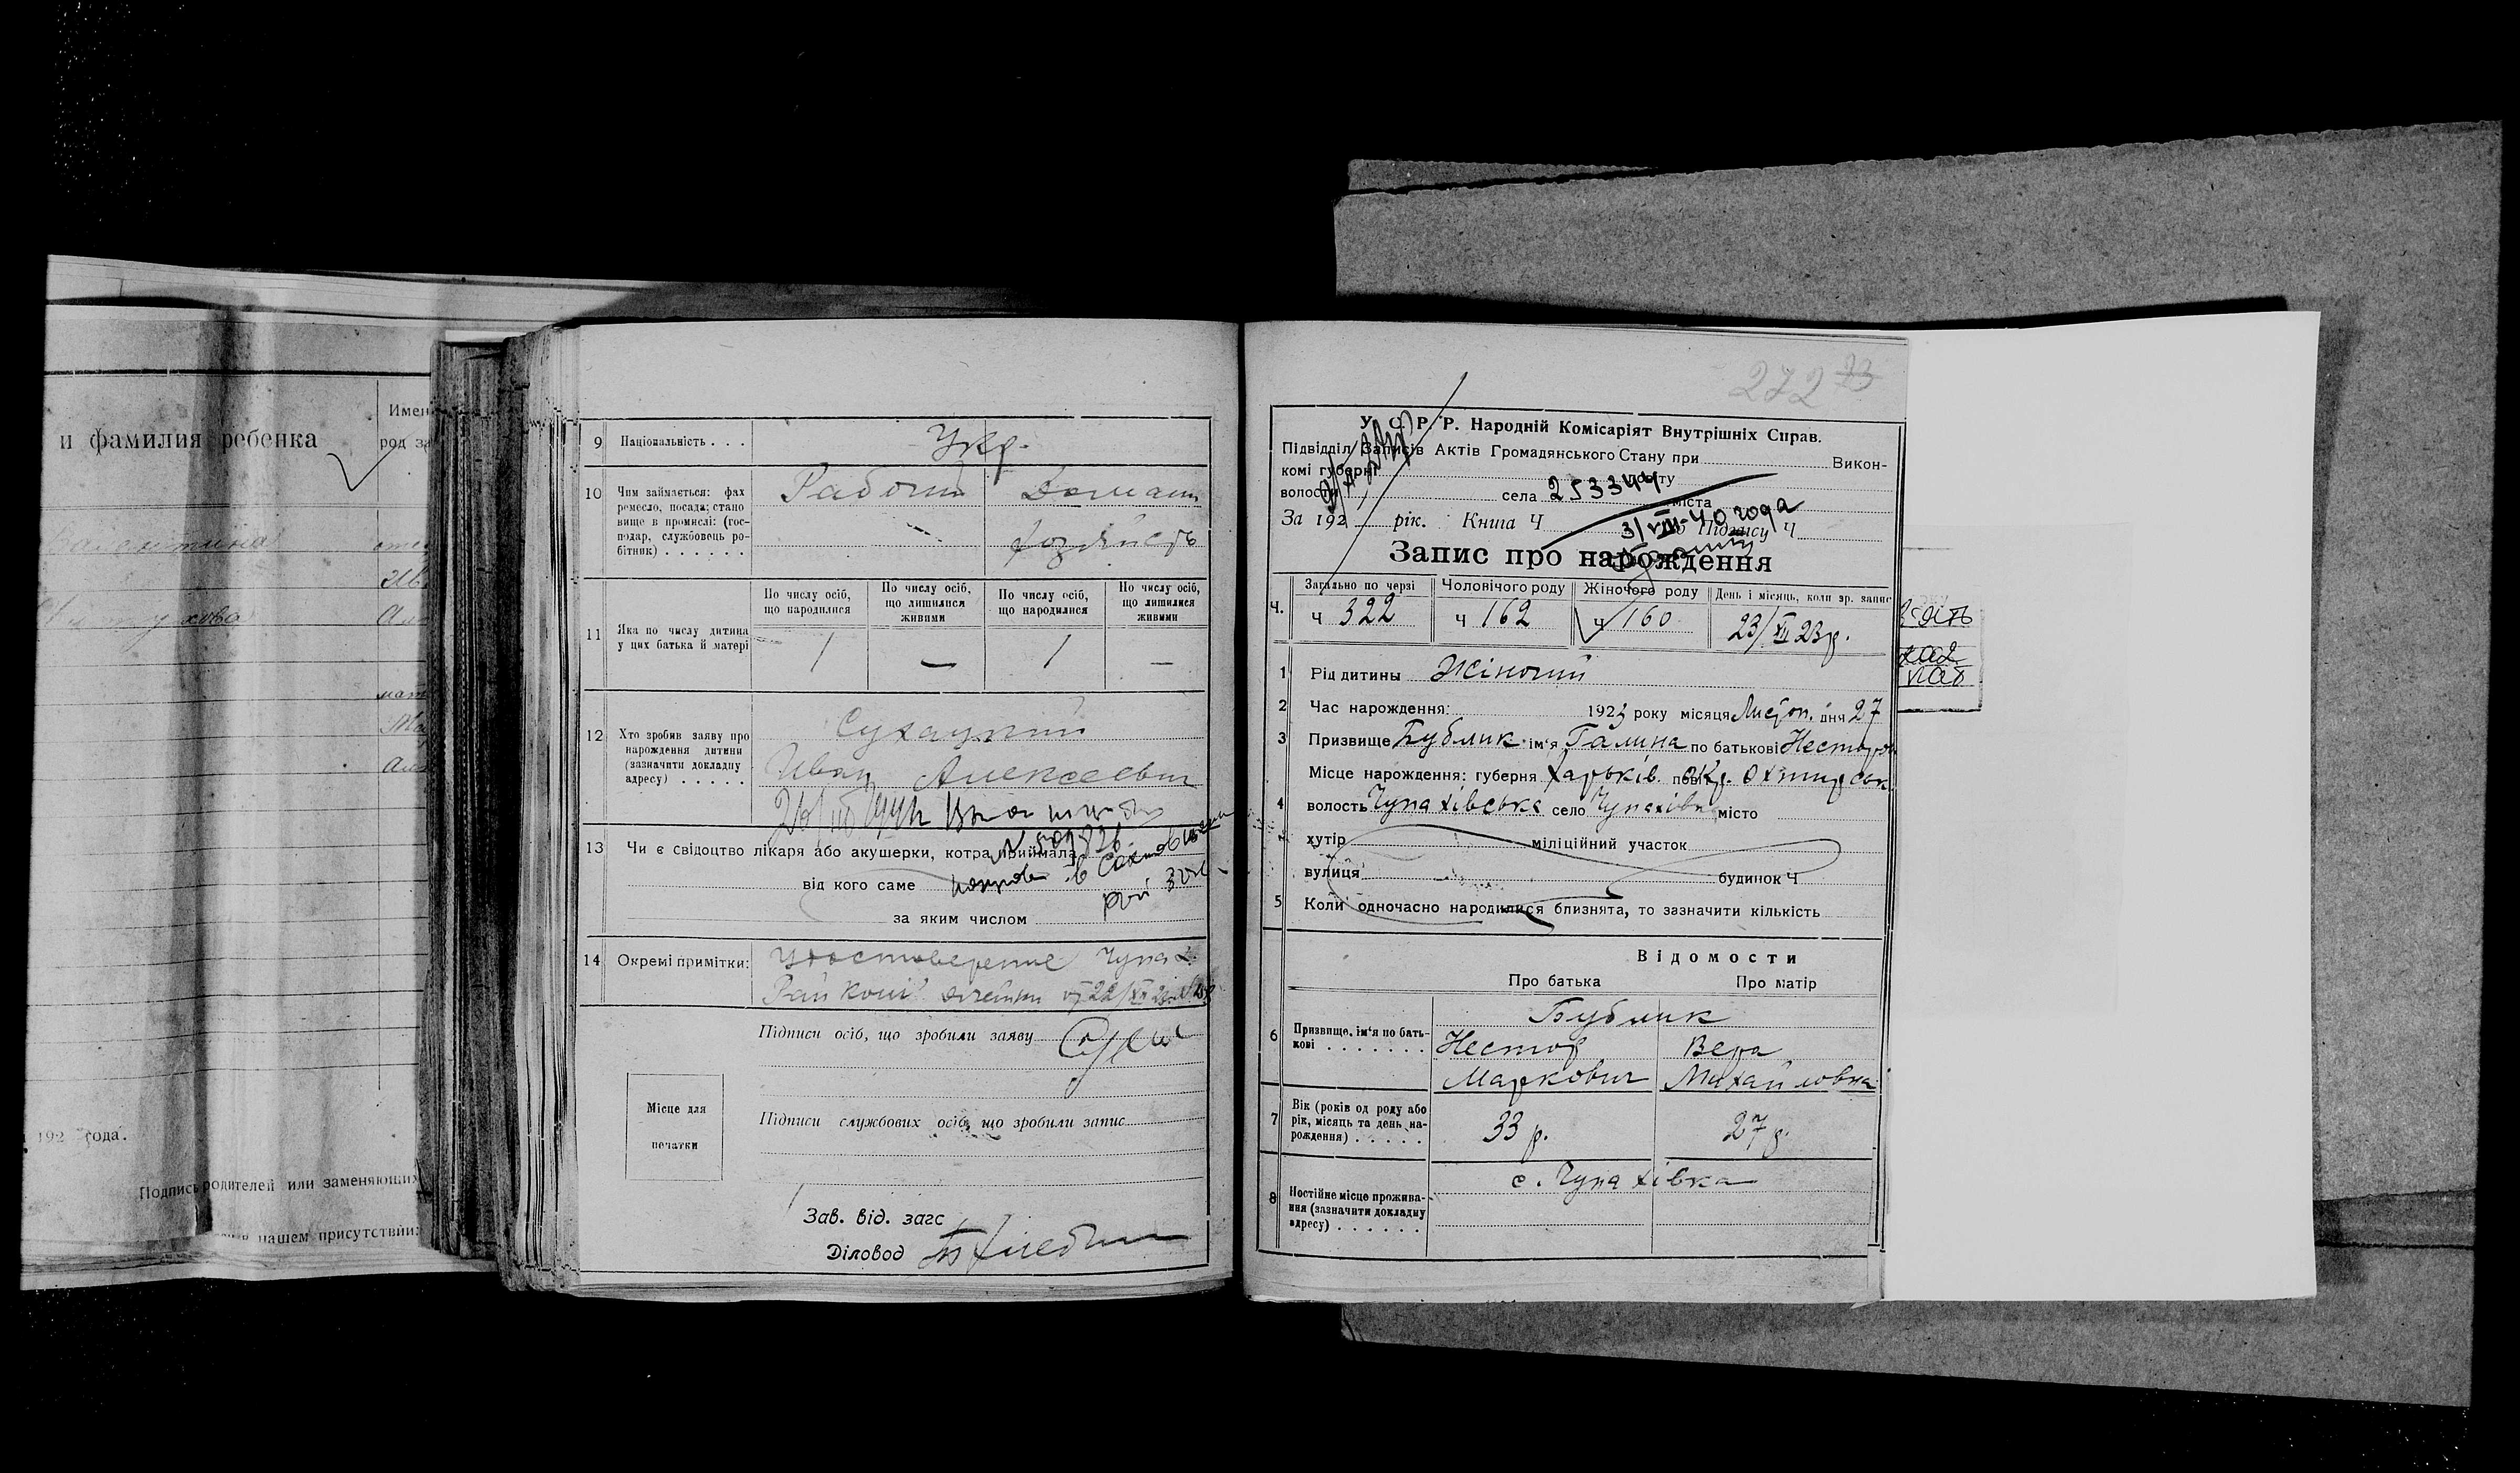 и фамилия ребенка
Имен
род за
192 года.
Подпись родителей или заменяющих
в нашем присутствии:
9 Національність . . . Укр.
10 Чим займається: фах ремесло, посада; становище в промислі: (господар, службовець робітник) . . . . . .
Рабочий
Домашн
хозяйств
11 Яка по числу дитина у цих батька й матері
По числу осіб, що народилися
По числу осіб, що лишилися живими
По числу осіб, що народилися
По числу осіб, що лишилися живими
1 — 1 —
12 Хто зробив заяву про народження дитини (зазначити докладну адресу) . . . . .
Иван Алексеевич
13 Чи є свідоцтво лікаря або акушерки, котра приймала
від кого саме
за яким числом
14 Окремі примітки: Удостоверение Чупах.
Підписи осіб, що зробили заяву
Місце для печатки
Підписи службових осіб, що зробили запис
Зав. від. загс
Діловод
272 23
У. С. Р. Р. Народній Комісаріят Внутрішніх Справ.
Підвідділ Записів Актів Громадянського Стану при Викон-
комі губерні повіту
волости села 253344 міста
За 192 рік. Книга Ч по Підпису Ч
3/VIII-40 года
Запис про народження
Ч. Загально по черзі Чоловічого роду Жіночого роду День і місяць, коли зр. запис
ч 322 ч 162 ч 160 23/XII 23р.
1 Рід дитины Жіночий
2 Час нарождення: 1923 року місяця Листоп. дня 27
3 Призвище Бублик ім'я Галина по батькові Нестор
Місце нарождення: губерня Харьків. повіт Окр. Охтирськ
4 волость Чупахівська село Чупахівка місто
хутір міліційний участок
вулиця будинок Ч
5 Коли одночасно народилися близнята, то зазначити кількість
Відомости
Про батька Про матір
6 Призвище, ім'я по батькові . . . . . . .
Бублик
Нестор Вера
Маркович Михайловна
7 Вік (років од роду або рік, місяць та день народження) . . . . .
33 р. 27 р.
8 Постійне місце проживання (зазначити докладну адресу) . . . . . .
с. Чупахівка